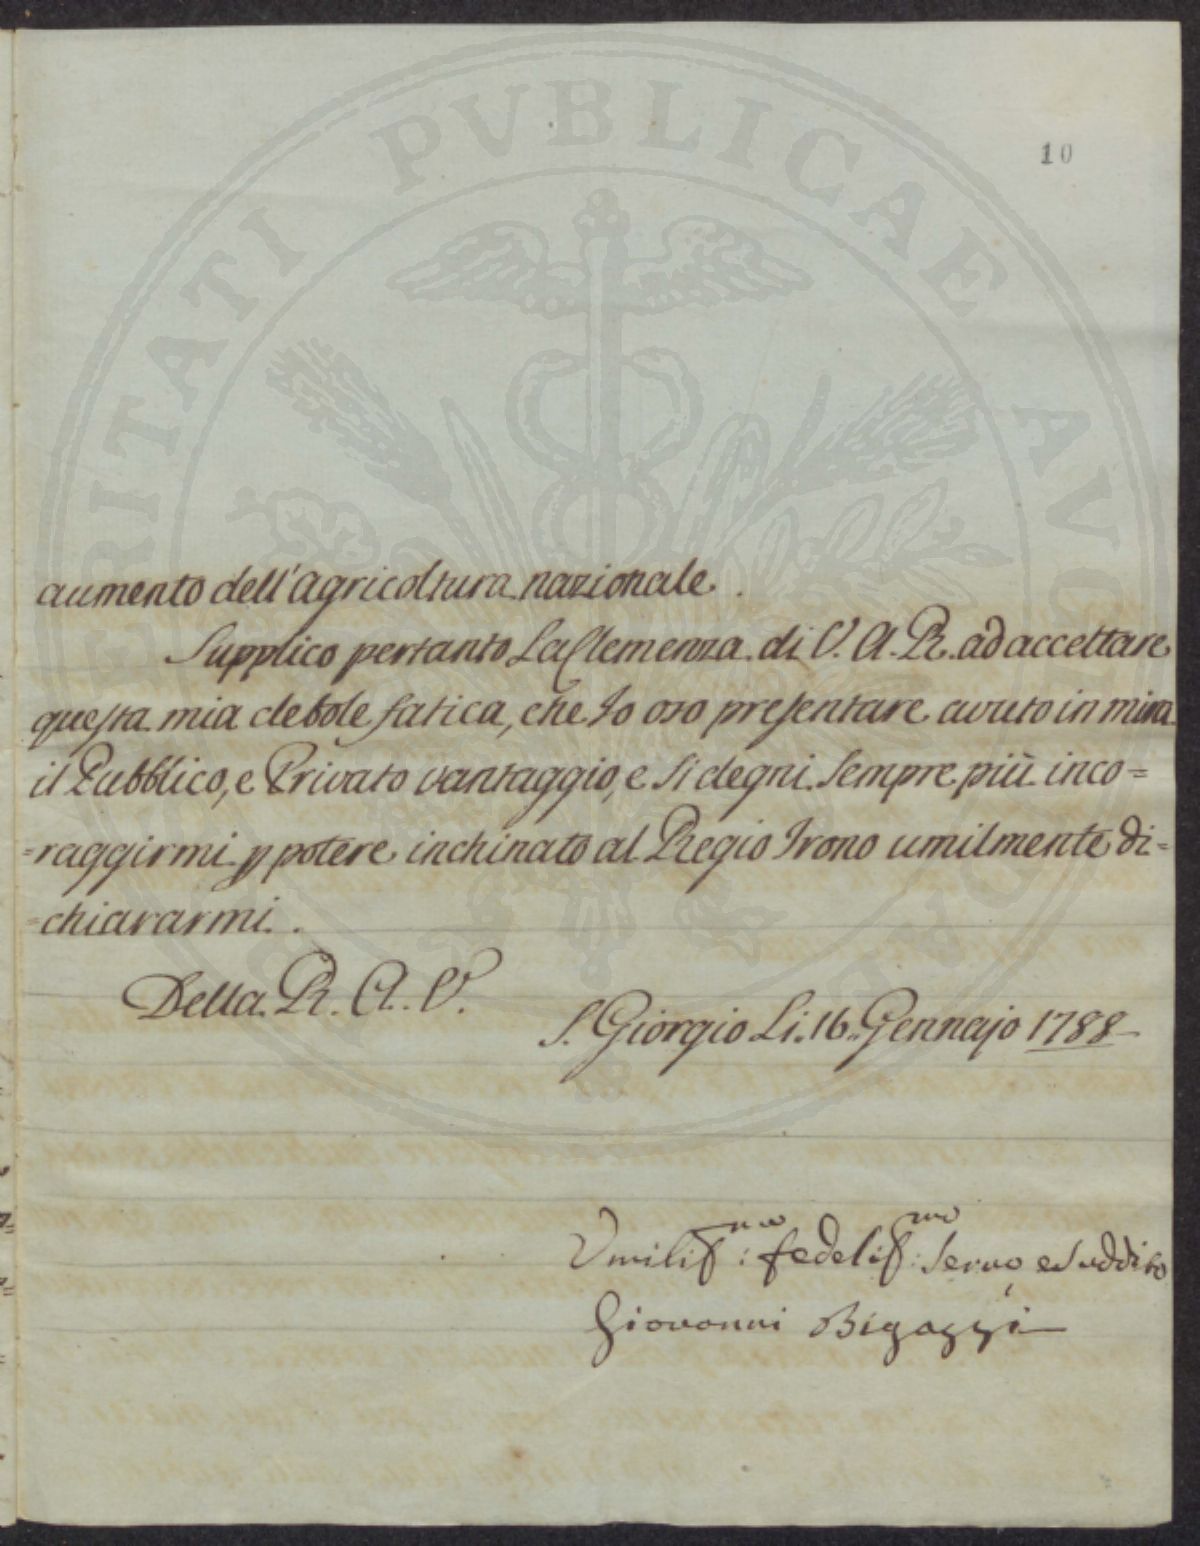 10
aumento dell'agricoltura nazionale.
Supplico pertanto La Clemenza di V. A. R. ad accettare
questa mia debole fatica, che Io oso presentare avuto in mira
il Pubblico, e Privato vantaggio, e Si degni Sempre più inco=
=raggirmi p potere inchinato al Regio Trono umilmente di=
=chiararmi.
Della R. A. V.
S. Giorgio Li. 16. Gennajo 1788
Umiliss:mo fedeliss:mo Servo, e Suddito
Giovanni Bigazzi